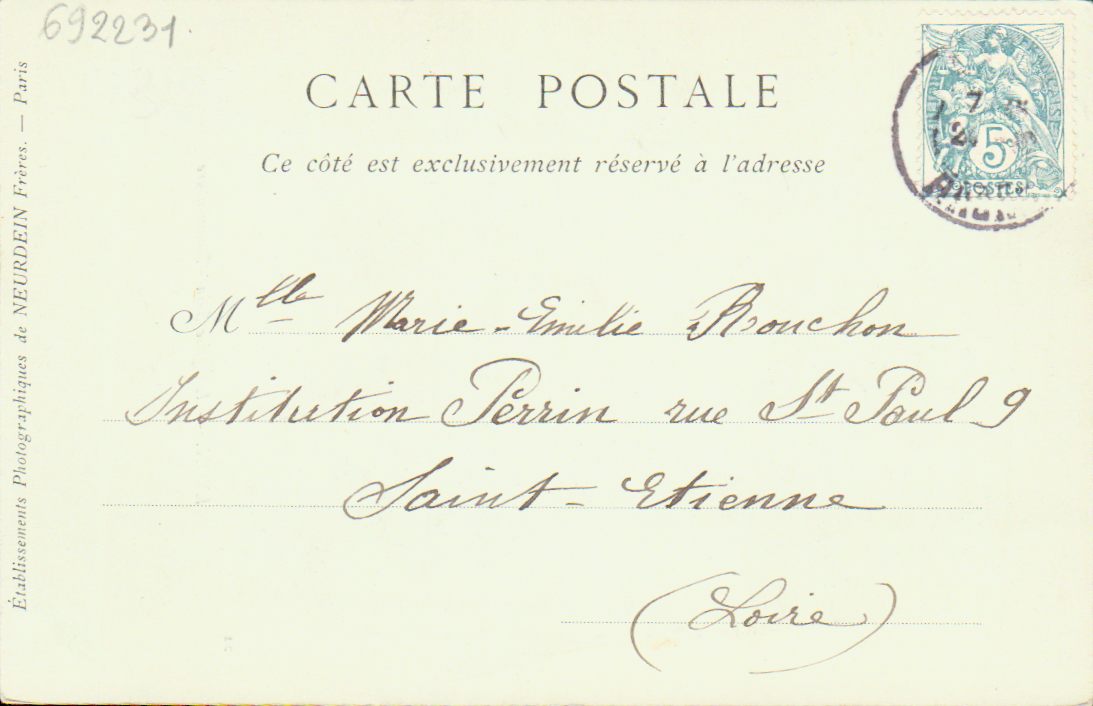 692231.
CARTE POSTALE
Ce côté est exclusivement réservé à l'adresse
7
5
POSTES
Mlle Marie-Emilie Rouchon
Institution Perrin rue St Paul 9
Saint-Etienne
(Loire)
Établissements Photographiques de NEURDEIN Frères. — Paris